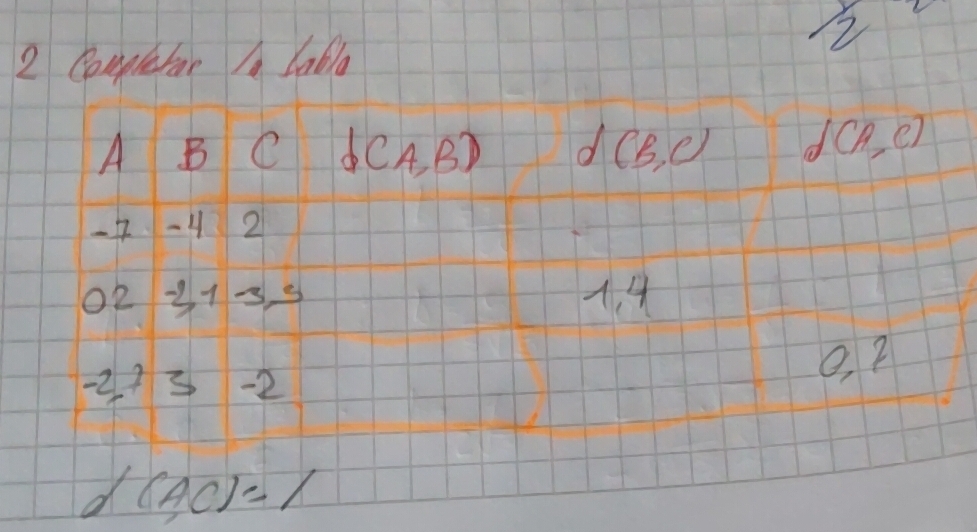 2 Completar la tabla
A B C d(A,B) d(B,C) d(A,C)
-7 -4 2
02 -2,1 -3,5 1,4
-2,7 3 -2 0,7
d(A,C)= /